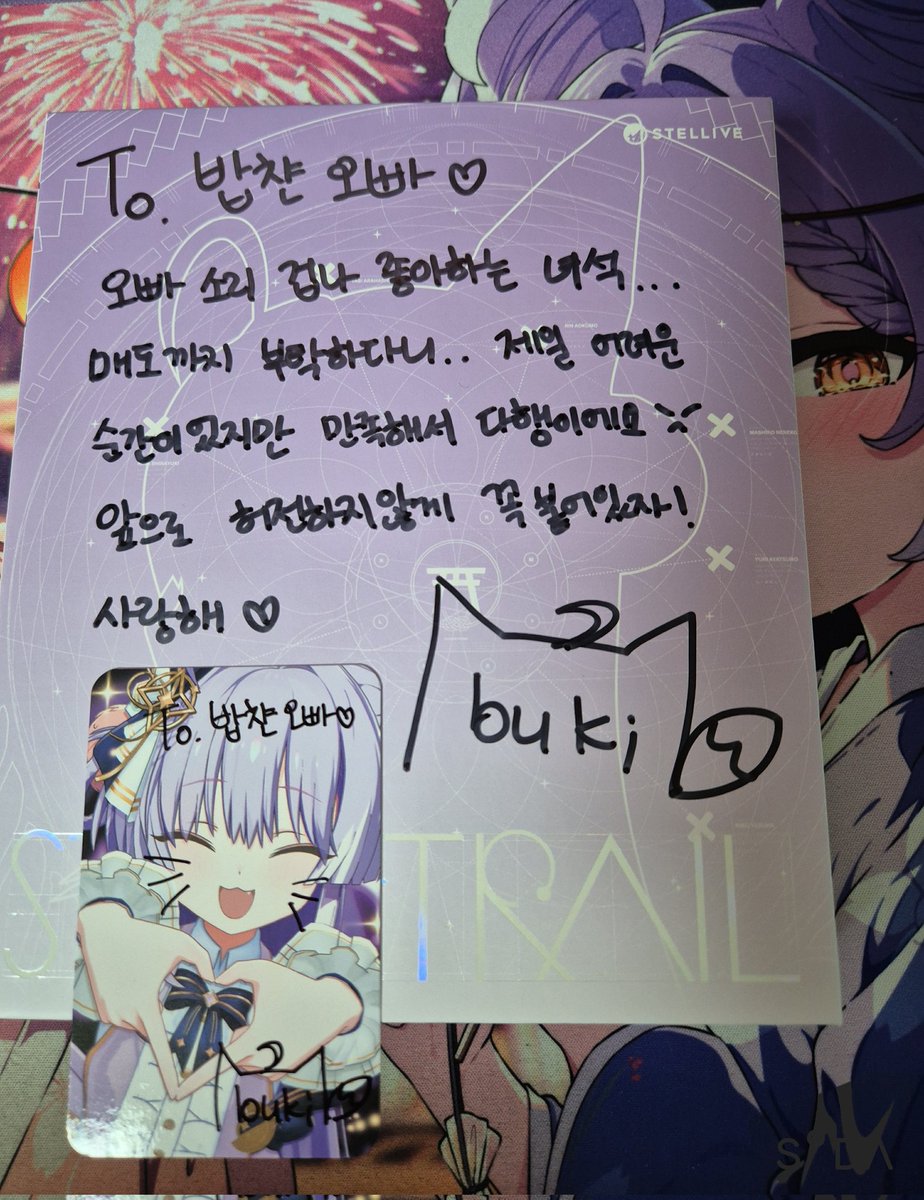 STELLIVE
To. 밥챤 오빠♡
오빠 소리 겁나 좋아하는 녀석...
매도까지 부탁하다니.. 제일 어려운
순간이 있지만 만족해서 다행이에요
앞으로 허전하지 않게 꼭 붙어있자!
사랑해 ♡
buki
To. 밥챤 오빠♡
buki
TRAIL